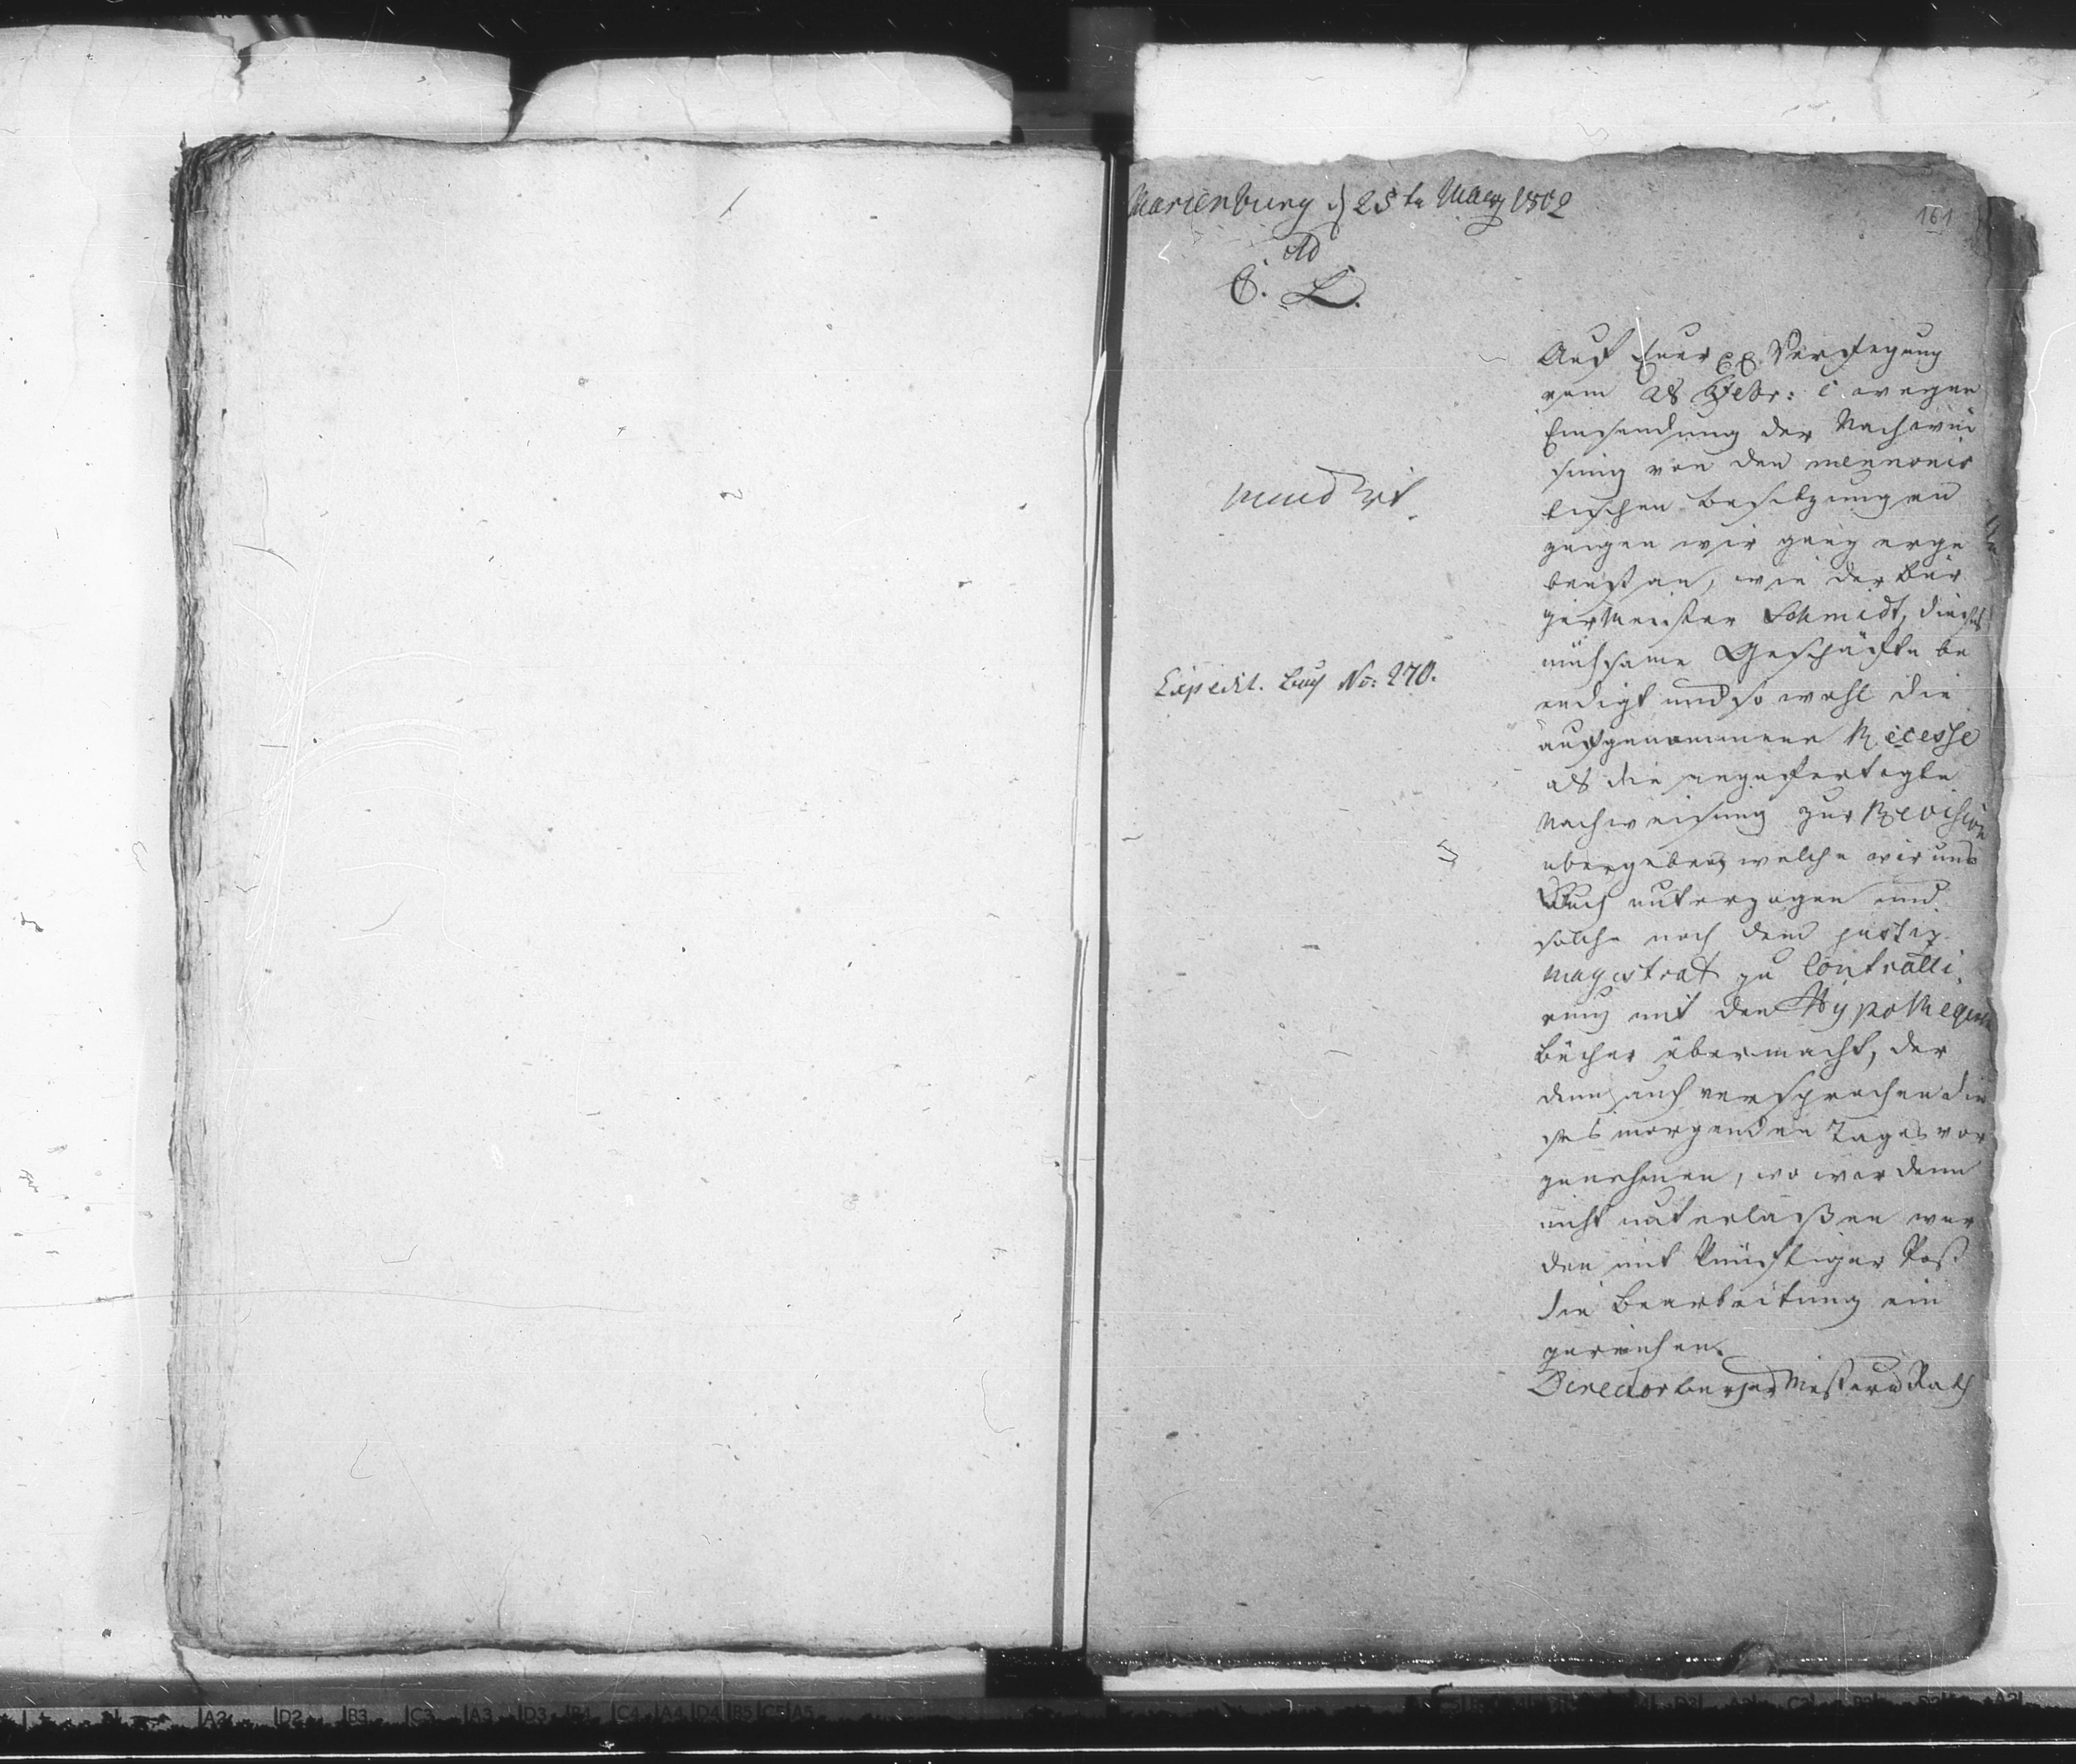 161
Marienburg d 25ten Maerz 1802
Ad
C. L.
mund
Expedit. Buch No: 270.
Auf Euer Verfegung
vom 28 Febr: c wegen
Einsendung der Nachwei
sung von den mennonis
tischen Besitzungen
zeigen wir ganz erge
benst an, wie der Bür
germeister Schmidt, dieses
mühsame Geschäfte be
endigt und so wohl die
aufgenommene Recesse
als die angefertigte
Nachweisung zur Revision
übergeben, welche wir uns
auch unterzogen und
solche noch dem Justiz
Magistrat zu Controlli
rung mit den Hypothequen
Bücher übermacht, der
denn auch versprochen die
ses morgenden Tages vor
zunehmen, wo wir denn
nicht unterlaßen wer
den mit künftiger Post
die Bearbeitung ein
zureichen.
Director Burger Meister u Rath